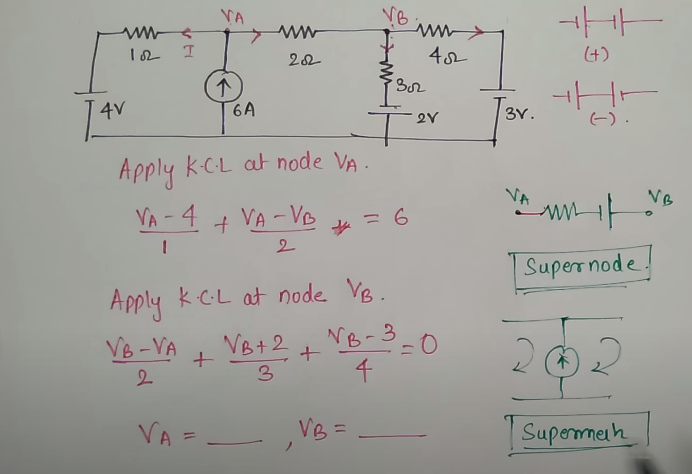 VA
VB
1Ω
I
2Ω
4Ω
3Ω
4V
6A
2V
3V.
(+)
(-).
Apply K.C.L at node VA.
VA - 4 / 1 + VA - VB / 2 = 6
Apply K.C.L at node VB.
VB - VA / 2 + VB + 2 / 3 + VB - 3 / 4 = 0
VA = ___ , VB = ___
VA
VB
Supernode.
Supermesh